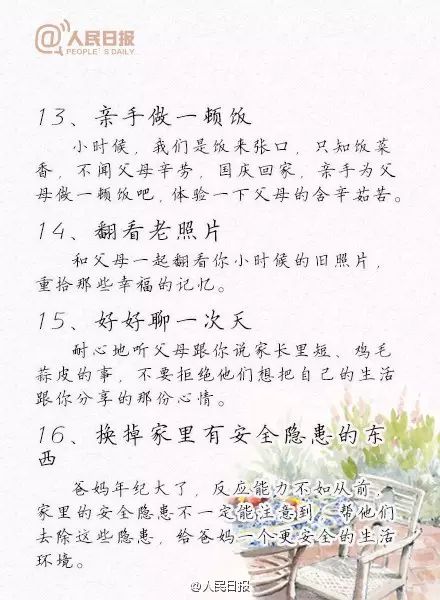 @人民日报
PEOPLE'S DAILY
13、亲手做一顿饭
小时候，我们是饭来张口，只知饭菜
香，不闻父母辛劳，国庆回家，亲手为父
母做一顿饭吧，体验一下父母的含辛茹苦。
14、翻看老照片
和父母一起翻看你小时候的旧照片，
重拾那些幸福的记忆。
15、好好聊一次天
耐心地听父母跟你说家长里短、鸡毛
蒜皮的事，不要拒绝他们想把自己的生活
跟你分享的那份心情。
16、换掉家里有安全隐患的东
西
爸妈年纪大了，反应能力不如从前，
家里的安全隐患不一定能注意到，帮他们
去除这些隐患，给爸妈一个更安全的生活
环境。
@人民日报